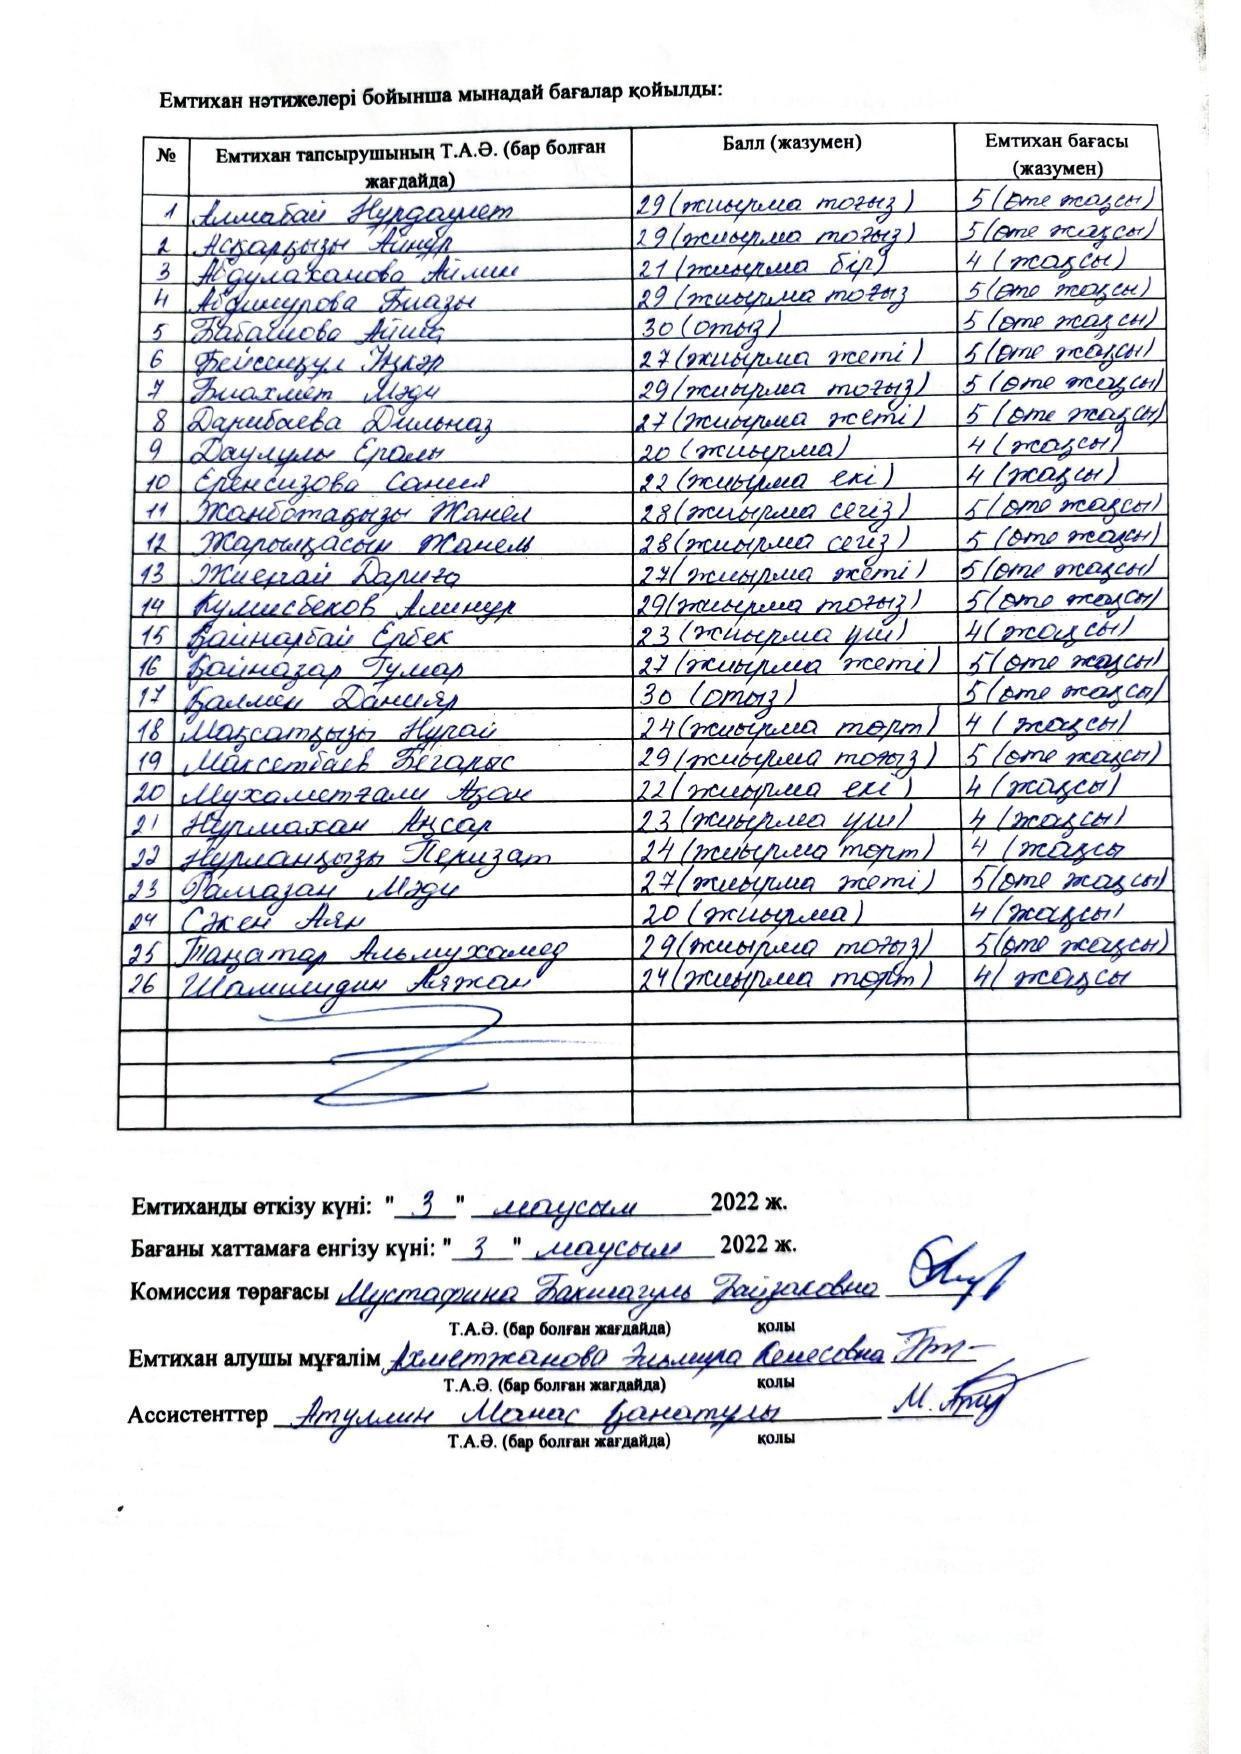 Емтихан нәтижелері бойынша мынадай бағалар қойылды:
№ Емтихан тапсырушының Т.А.Ә. (бар болған жағдайда) Балл (жазумен) Емтихан бағасы (жазумен)
1 Алмабай Нұрдәулет 29 (жиырма тоғыз) 5 (өте жақсы)
2 Асқарқызы Айнұр 29 (жиырма тоғыз) 5 (өте жақсы)
3 Абдулаханова Айлин 21 (жиырма бір) 4 (жақсы)
4 Абдинурова Биазы 29 (жиырма тоғыз 5 (өте жақсы)
5 Бабашова Айша 30 (отыз) 5 (өте жақсы)
6 Бейсенқұл Іңкәр 27 (жиырма жеті) 5 (өте жақсы)
7 Биахмет Мәди 29 (жиырма тоғыз) 5 (өте жақсы)
8 Дарибаева Дильназ 27 (жиырма жеті) 5 (өте жақсы)
9 Даулулы Ералы 20 (жиырма) 4 (жақсы)
10 Еренсизова Сания 22 (жиырма екі) 4 (жақсы)
11 Жанботақызы Жанел 28 (жиырма сегіз) 5 (өте жақсы)
12 Жарылқасын Жанель 28 (жиырма сегіз) 5 (өте жақсы)
13 Жиенай Дариға 27 (жиырма жеті) 5 (өте жақсы)
14 Кумисбеков Алинур 29 (жиырма тоғыз) 5 (өте жақсы)
15 Қайнарбай Ербек 23 (жиырма үш) 4 (жақсы)
16 Қайназар Тумар 27 (жиырма жеті) 5 (өте жақсы)
17 Қалмен Данияр 30 (отыз) 5 (өте жақсы)
18 Мақсатқызы Нұрай 24 (жиырма төрт) 4 (жақсы)
19 Максетбаев Бегарыс 29 (жиырма тоғыз) 5 (өте жақсы)
20 Мұхаметғали Ақан 22 (жиырма екі) 4 (жақсы)
21 Нурмахан Аңсар 23 (жиырма үш) 4 (жақсы)
22 Нұрланқызы Перизат 24 (жиырма төрт) 4 (жақсы
23 Рамазан Мәди 27 (жиырма жеті) 5 (өте жақсы)
24 Сәкен Аян 20 (жиырма) 4 (жақсы)
25 Таңатар Альмухамед 29 (жиырма тоғыз) 5 (өте жақсы)
26 Шамшидин Аяжан 24 (жиырма төрт) 4 (жақсы
Емтиханды өткізу күні: "3" маусым 2022 ж.
Бағаны хаттамаға енгізу күні: "3" маусым 2022 ж.
Комиссия төрағасы Мустафина Бакшагуль Байзаковна
Т.А.Ә. (бар болған жағдайда) қолы
Емтихан алушы мұғалім Ахметжанова Эльмира Кемесовна
Т.А.Ә. (бар болған жағдайда) қолы
Ассистенттер Атуллин Манас Қанатұлы
Т.А.Ә. (бар болған жағдайда) қолы